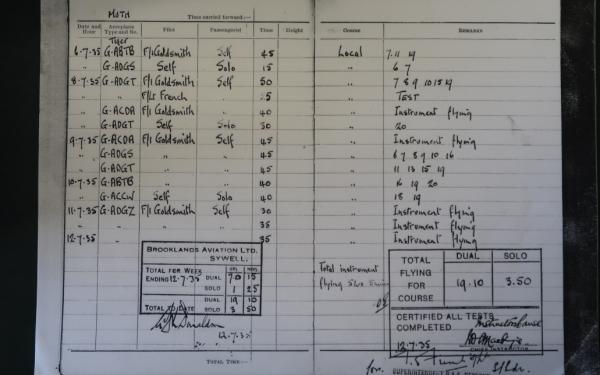 MOTH
Time carried forward:—
Date and Hour Aeroplane Type and No. Pilot Passenger(s) Time Height Course REMARKS
Tiger
6.7.35 G-ABTB F/l Goldsmith Self 45 Local 7. 11 19
" G-ADGS Self Solo 15 " 6 7
8.7.35 G-ADGT F/l Goldsmith Self 50 " 7 8 9 10 15 19
" " F/Lt French " 25 " TEST
" G-ACDA F/l Goldsmith " 40 " Instrument flying
" G-ADGT Self Solo 30 " 20
9.7.35 G-ACDA F/l Goldsmith Self 45 " Instrument flying
" G-ADGS " " 45 " 6 7 8 9 10 16
" G-ADGT " " 45 " 11 13 15 19
10.7.35 G-ABTB " " 40 " 16 19 20
" G-ACCW Self Solo 40 " 18 19
11.7.35 G-ADGZ F/l Goldsmith Self 30 " Instrument flying
" " " " 35 " Instrument flying
12.7.35 " 35 Instrument flying
BROOKLANDS AVIATION LTD.
SYWELL.
HRS. MINS.
TOTAL FOR WEEK
ENDING 12.7.35 DUAL 7.0 15
SOLO 1 25
DUAL 19 10
TOTAL TO DATE SOLO 3 50
12.7.35
TOTAL TIME:—
Total instrument
flying
TOTAL FLYING FOR COURSE
DUAL SOLO
19.10 3.50
CERTIFIED ALL TESTS
COMPLETED
12.7.35
CHIEF INSTRUCTOR
for.